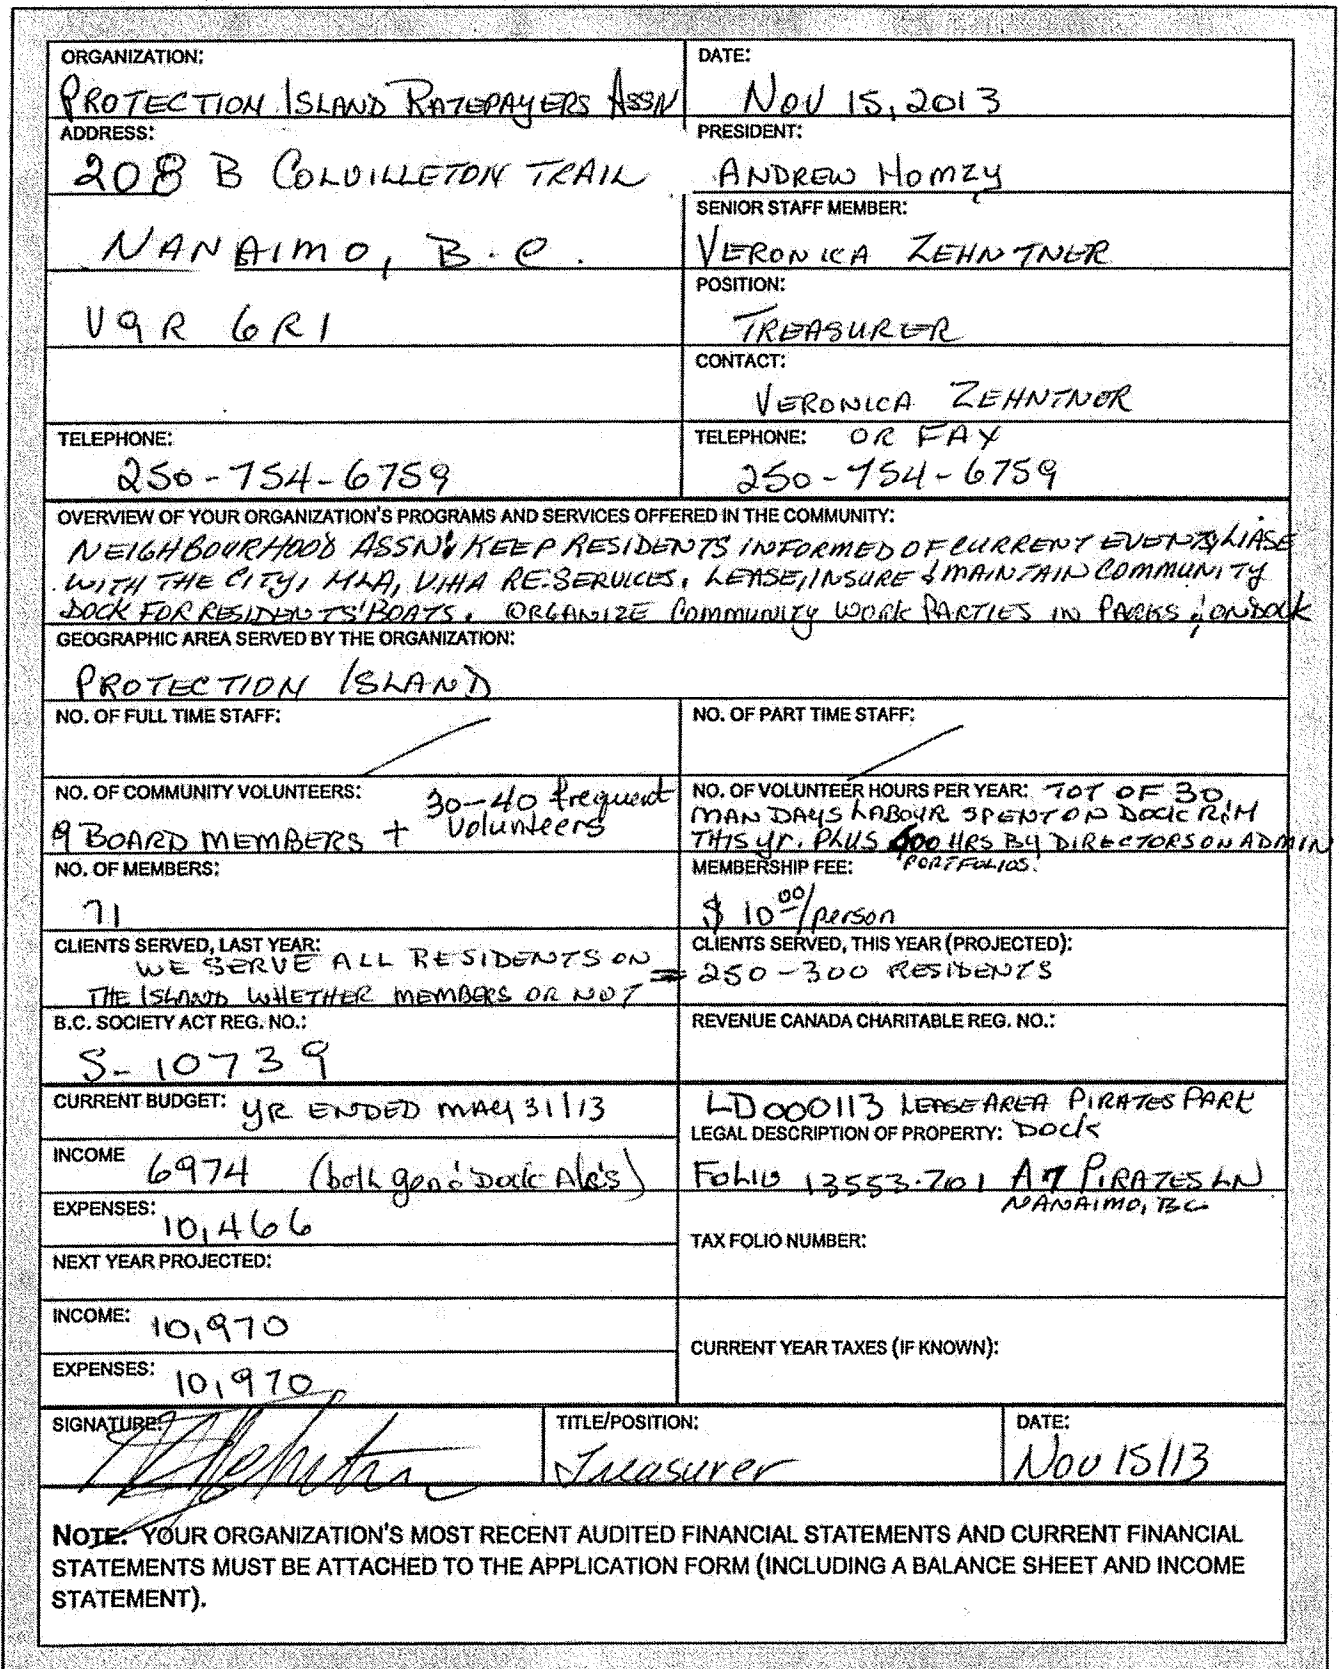 ORGANIZATION:
PROTECTION ISLAND RATEPAYERS ASSN
DATE:
NOV 15, 2013
ADDRESS:
208 B COLVILLETON TRAIL
PRESIDENT:
ANDREW HOMZY
NANAIMO, B.C.
SENIOR STAFF MEMBER:
VERONICA ZEHNTNER
V9R 6R1
POSITION:
TREASURER
CONTACT:
VERONICA ZEHNTNER
TELEPHONE:
250-754-6759
TELEPHONE: OR FAX
250-754-6759
OVERVIEW OF YOUR ORGANIZATION'S PROGRAMS AND SERVICES OFFERED IN THE COMMUNITY:
NEIGHBOURHOOD ASSN: KEEP RESIDENTS INFORMED OF CURRENT EVENTS, LIASE
WITH THE CITY, MLA, VIHA RE: SERVICES. LEASE, INSURE & MAINTAIN COMMUNITY
DOCK FOR RESIDENTS' BOATS. ORGANIZE COMMUNITY WORK PARTIES IN PARKS & ON DOCK
GEOGRAPHIC AREA SERVED BY THE ORGANIZATION:
PROTECTION ISLAND
NO. OF FULL TIME STAFF:
/
NO. OF PART TIME STAFF:
/
NO. OF COMMUNITY VOLUNTEERS:
9 BOARD MEMBERS + 30-40 frequent
volunteers
NO. OF VOLUNTEER HOURS PER YEAR: TOT OF 30
MAN DAYS LABOUR SPENT ON DOCK R&M
THIS yr. PLUS HRS BY DIRECTORS ON ADMIN
PORTFOLIOS.
NO. OF MEMBERS:
71
MEMBERSHIP FEE:
$ 10.00/person
CLIENTS SERVED, LAST YEAR:
WE SERVE ALL RESIDENTS ON
THE ISLAND WHETHER MEMBERS OR NOT
CLIENTS SERVED, THIS YEAR (PROJECTED):
= 250-300 RESIDENTS
B.C. SOCIETY ACT REG. NO.:
S-10739
REVENUE CANADA CHARITABLE REG. NO.:
CURRENT BUDGET: YR ENDED MAY 31/13
INCOME 6974 (both gen & Dock A/c's)
EXPENSES: 10,466
LD000113 LEASE AREA PIRATES PARK
LEGAL DESCRIPTION OF PROPERTY: DOCK
FOLIO 13553.701 A7 PIRATES LN
NANAIMO, BC
TAX FOLIO NUMBER:
NEXT YEAR PROJECTED:
INCOME: 10,970
EXPENSES: 10,970
CURRENT YEAR TAXES (IF KNOWN):
SIGNATURE:
TITLE/POSITION:
Treasurer
DATE:
Nov 15/13
NOTE: YOUR ORGANIZATION'S MOST RECENT AUDITED FINANCIAL STATEMENTS AND CURRENT FINANCIAL
STATEMENTS MUST BE ATTACHED TO THE APPLICATION FORM (INCLUDING A BALANCE SHEET AND INCOME
STATEMENT).